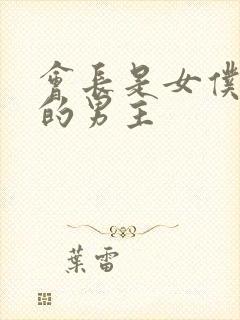 會長是女僕
的男主
葉雷